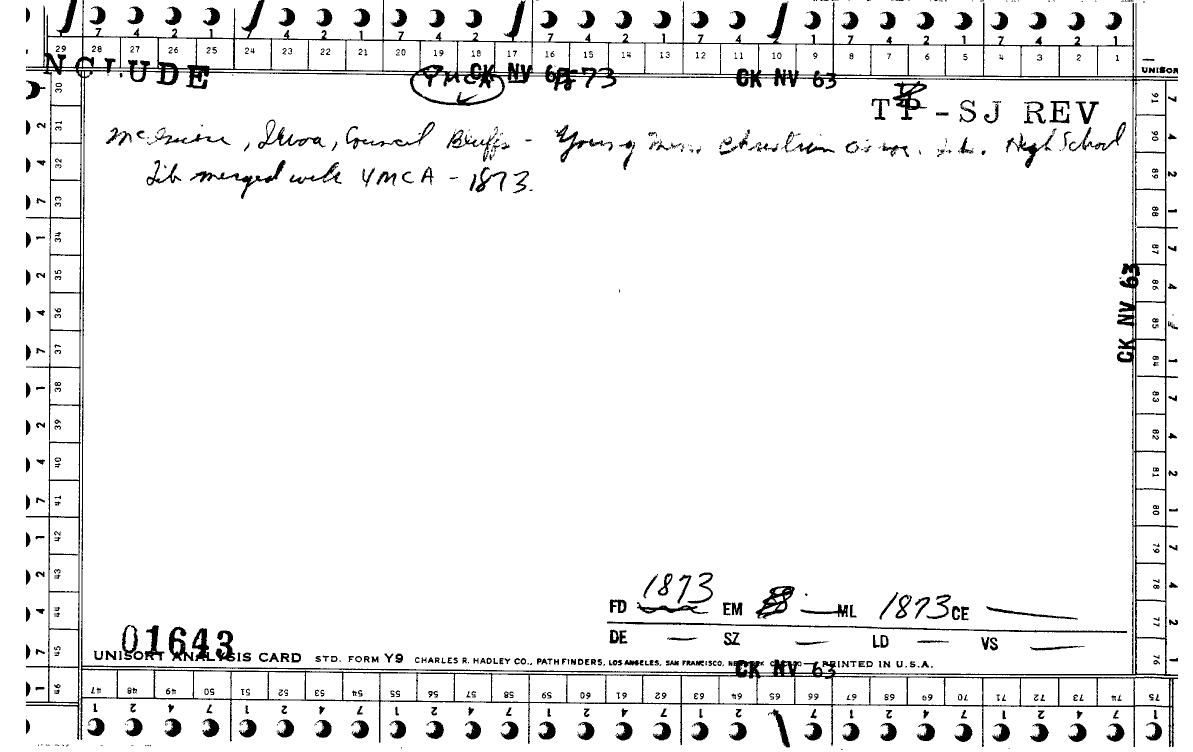 7 4 2 1 7 4 2 1 7 4 2 1 7 4 2 1 7 4 2 1 7 4 2 1 7 4 2 1
29 28 27 26 25 24 23 22 21 20 19 18 17 16 15 14 13 12 11 10 9 8 7 6 5 4 3 2 1
NCLUDE CK NV 63 73 CK NV 63 UNISOR
T - SJ REV
Iowa, Council Bluffs - Young Mens Christian Assoc. Lib. High School
Lib merged with YMCA - 1873.
30
31
32
33
34
35
36
37
38
39
40
41
42
43
44
45
46
91
90
89
88
87
86
85
84
83
82
81
80
79
78
77
76
75
CK NV 63
FD 1873 EM ML 1873 CE
DE SZ LD VS
01643
UNISORT ANALYSIS CARD STD. FORM Y9 CHARLES R. HADLEY CO., PATHFINDERS, LOS ANGELES, SAN FRANCISCO, PRINTED IN U.S.A.
CK NV 63
47 48 49 50 51 52 53 54 55 56 57 58 59 60 61 62 63 64 65 66 67 68 69 70 71 72 73 74